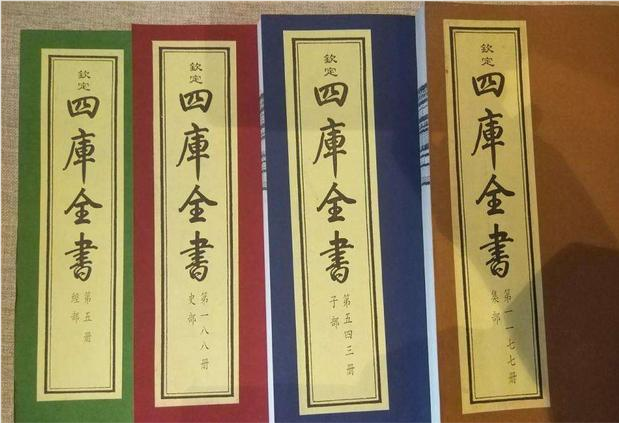 欽定
四庫全書
第五册
經部
欽定
四庫全書
第一八八册
史部
欽定
四庫全書
第五四三册
子部
欽定
四庫全書
第一一七七册
集部